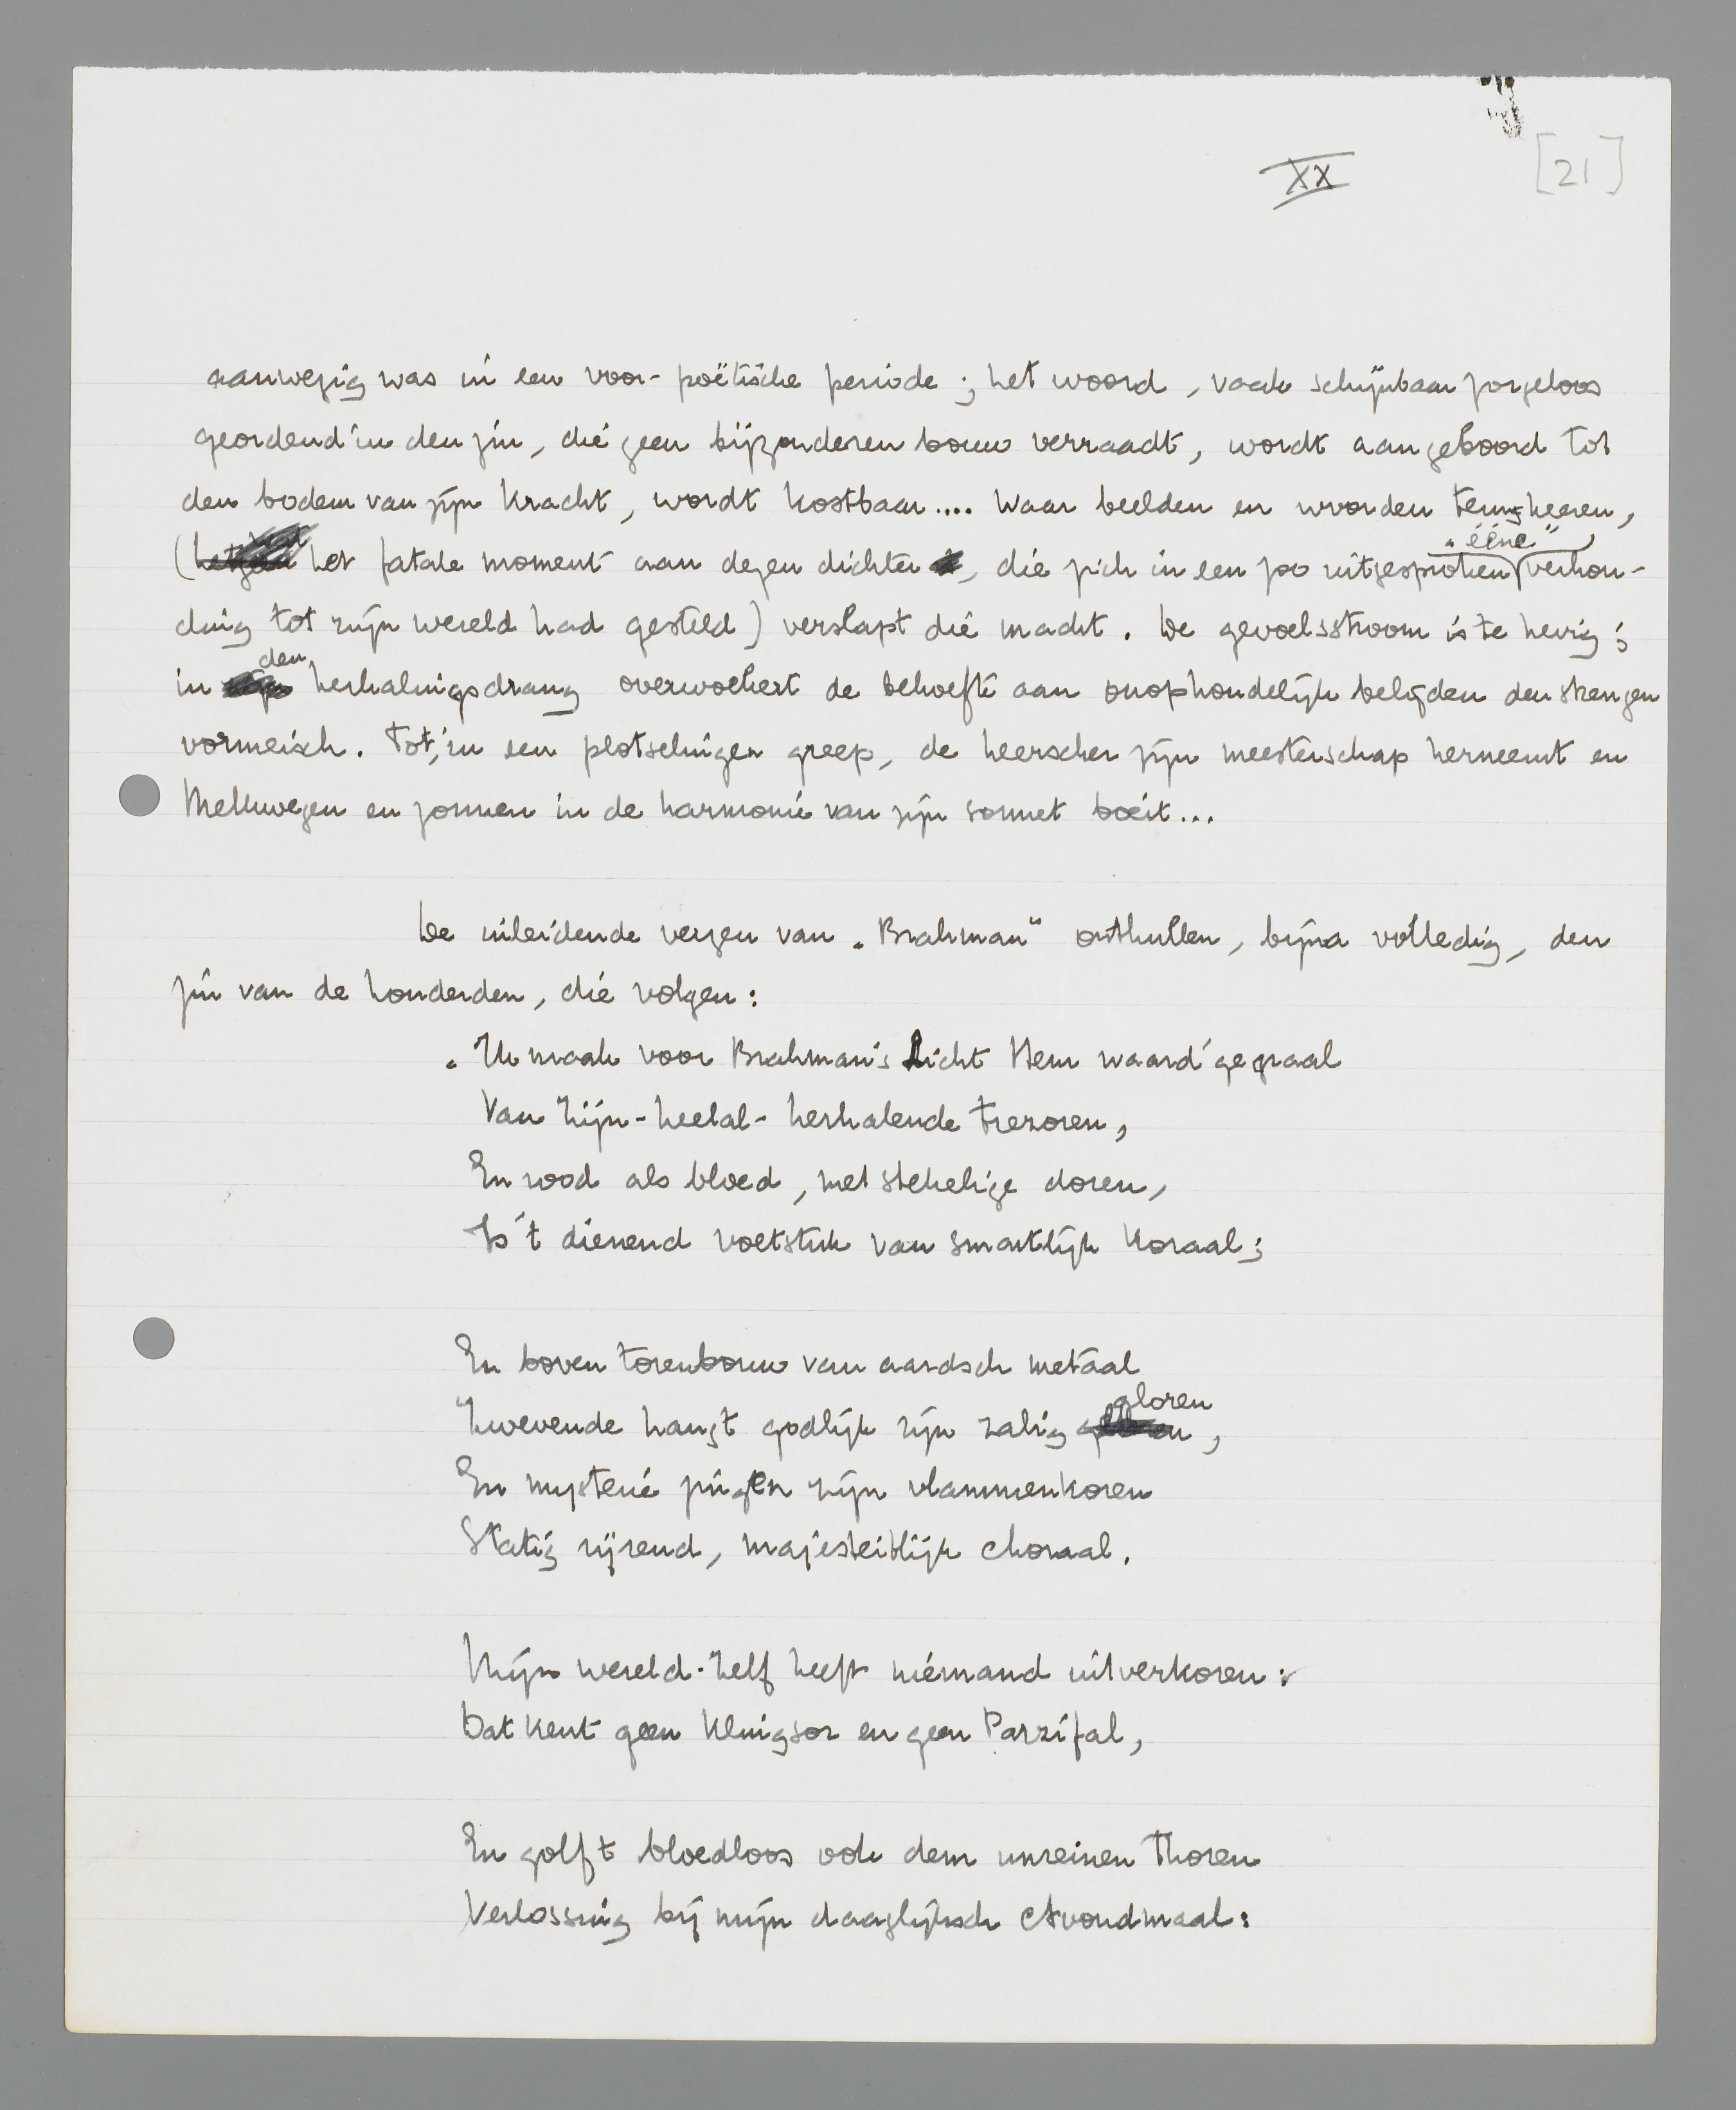 XX
[21]
aanwezig was in een voor-poëtische periode; het woord, vaak schijnbaar zorgeloos
geordend in den zin, die geen bijzonderen bouw verraadt, wordt aangeboord tot
den bodem van zijn kracht, wordt kostbaar.... Waar beelden en woorden terugkeeren,
(het fatale moment aan dezen dichter, die zich in een zoo uitgesproken „ééne" verhou-
ding tot zijn wereld had gesteld) verslapt die macht. De gevoelsstroom is te hevig;
in den herhalingsdrang overwoekert de behoefte aan onophoudelijk belijden den strengen
vormeisch. Tot, in een plotselingen greep, de heerscher zijn meesterschap herneemt en
Melkwegen en zonnen in de harmonie van zijn sonnet boeit...
De inleidende verzen van „Brahman" onthullen, bijna volledig, den
zin van de honderden, die volgen:
„Ik maak voor Brahman's Licht Hem waard'ge graal
Van Zijn-heelal-herhalende trezoren,
En rood als bloed, met stekelige doren,
Is 't dienend voetstuk van smartlijk koraal;
En boven torenbouw van aardsch metaal
Zwevende hangt godlijk zijn zalig gloren,
En mysterie zingen zijn vlammenkoren
Statig rijzend, majesteitlijk choraal.
Mijn wereld-Zelf heeft niemand uitverkoren:
Dat kent geen Klingsor en geen Parzifal,
En golft bloedloos ook dem unreinen Thoren
Verlossing bij mijn daaglijksch Avondmaal: